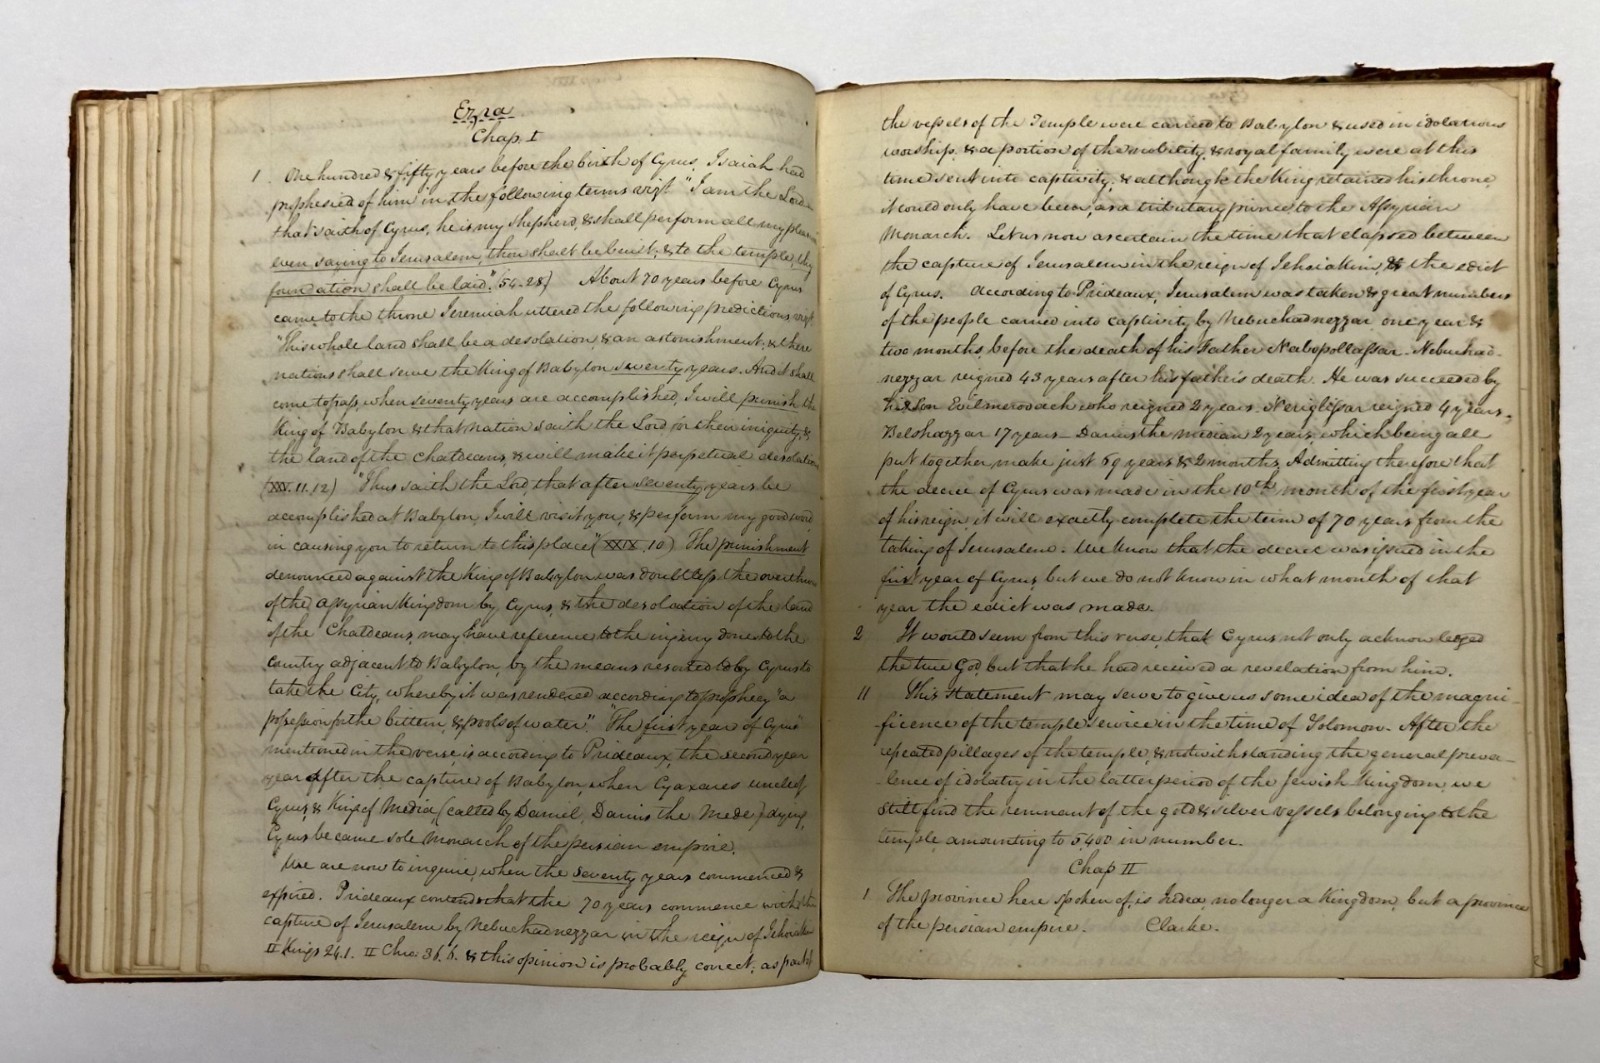 Ezra
Chap. I
1. One hundred & fifty years before the birth of Cyrus, Isaiah had
prophesied of him in the following terms vizt "I am the Lord
that saith of Cyrus, he is my shepherd, & shall perform all my pleasure
even saying to Jerusalem, thou shalt be built, & to the temple, thy
foundation shall be laid." (54.28) About 70 years before Cyrus
came to the throne Jeremiah uttered the following predictions vizt
"This whole land shall be a desolation, & an astonishment, & these
nations shall serve the King of Babylon seventy years. And it shall
come to pass, when seventy years are accomplished, I will punish the
King of Babylon & that nation saith the Lord, for their iniquity, &
the land of the Chaldeans, & will make it perpetual desolation
(XXV. 11.12) "Thus saith the Lord, that after seventy years be
accomplished at Babylon, I will visit you, & perform my good word
in causing you to return to this place" (XXIX. 10) The punishment
denounced against the King of Babylon was doubtless the overthrow
of the Assyrian Kingdom by Cyrus, & the desolation of the land
of the Chaldeans, may have reference to the injury done to the
country adjacent to Babylon, by the means resorted to by Cyrus to
take the City, whereby it was rendered according to prophecy "a
possession for the bittern, & pools of water". "The first year of Cyrus"
mentioned in the verse, is according to Prideaux, the second year
year after the capture of Babylon, when Cyaxares uncle of
Cyrus, & King of Media, (called by Daniel, Darius the Mede) dying,
Cyrus became sole monarch of the persian empire.
We are now to inquire, when the seventy years commenced &
expired. Prideaux contends that the 70 years commence with the
capture of Jerusalem by Nebuchadnezzar in the reign of Jehoiakim
II Kings 24.1. II Chro. 36.6. & this opinion is probably correct, as part of
the vessels of the Temple were carried to Babylon & used in idolatrous
worship, & a portion of the nobility, & royal family were at this
time sent into captivity, & although the King retained his throne,
it could only have been, as a tributary prince to the Assyrian
Monarch. Let us now ascertain the time that elapsed between
the capture of Jerusalem in the reign of Jehoiakim, & the edict
of Cyrus. According to Prideaux, Jerusalem was taken & great numbers
of the people carried into captivity by Nebuchadnezzar one year &
two months before the death of his Father Nabopollassar - Nebuchad-
nezzar reigned 43 years after his father's death. He was succeeded by
his Son Evilmerodach who reigned 2 years. Neriglissar reigned 4 years,
Belshazzar 17 years - Darius the median 2 years, which being all
put together make just 69 years & 2 months. Admitting therefore that
the decree of Cyrus was made in the 10th month of the first year
of his reign it will exactly complete the term of 70 years from the
taking of Jerusalem. We know that the decree was issued in the
first year of Cyrus, but we do not know in what month of that
year the edict was made.
2 It would seem from this verse, that Cyrus not only acknowleged
the true God, but that he had received a revelation from him.
11 This statement may serve to give us some idea of the magni-
-ficence of the temple service in the time of Solomon. After the
repeated pillages of the temple, & notwithstanding the general preva-
-lence of idolatry in the latter period of the Jewish Kingdom, we
still find the remnant of the gold & silver vessels belonging to the
temple, amounting to 5,400 in number.
Chap II
1 The province here spoken of, is Judea, no longer a Kingdom, but a province
of the persian empire. Clarke.